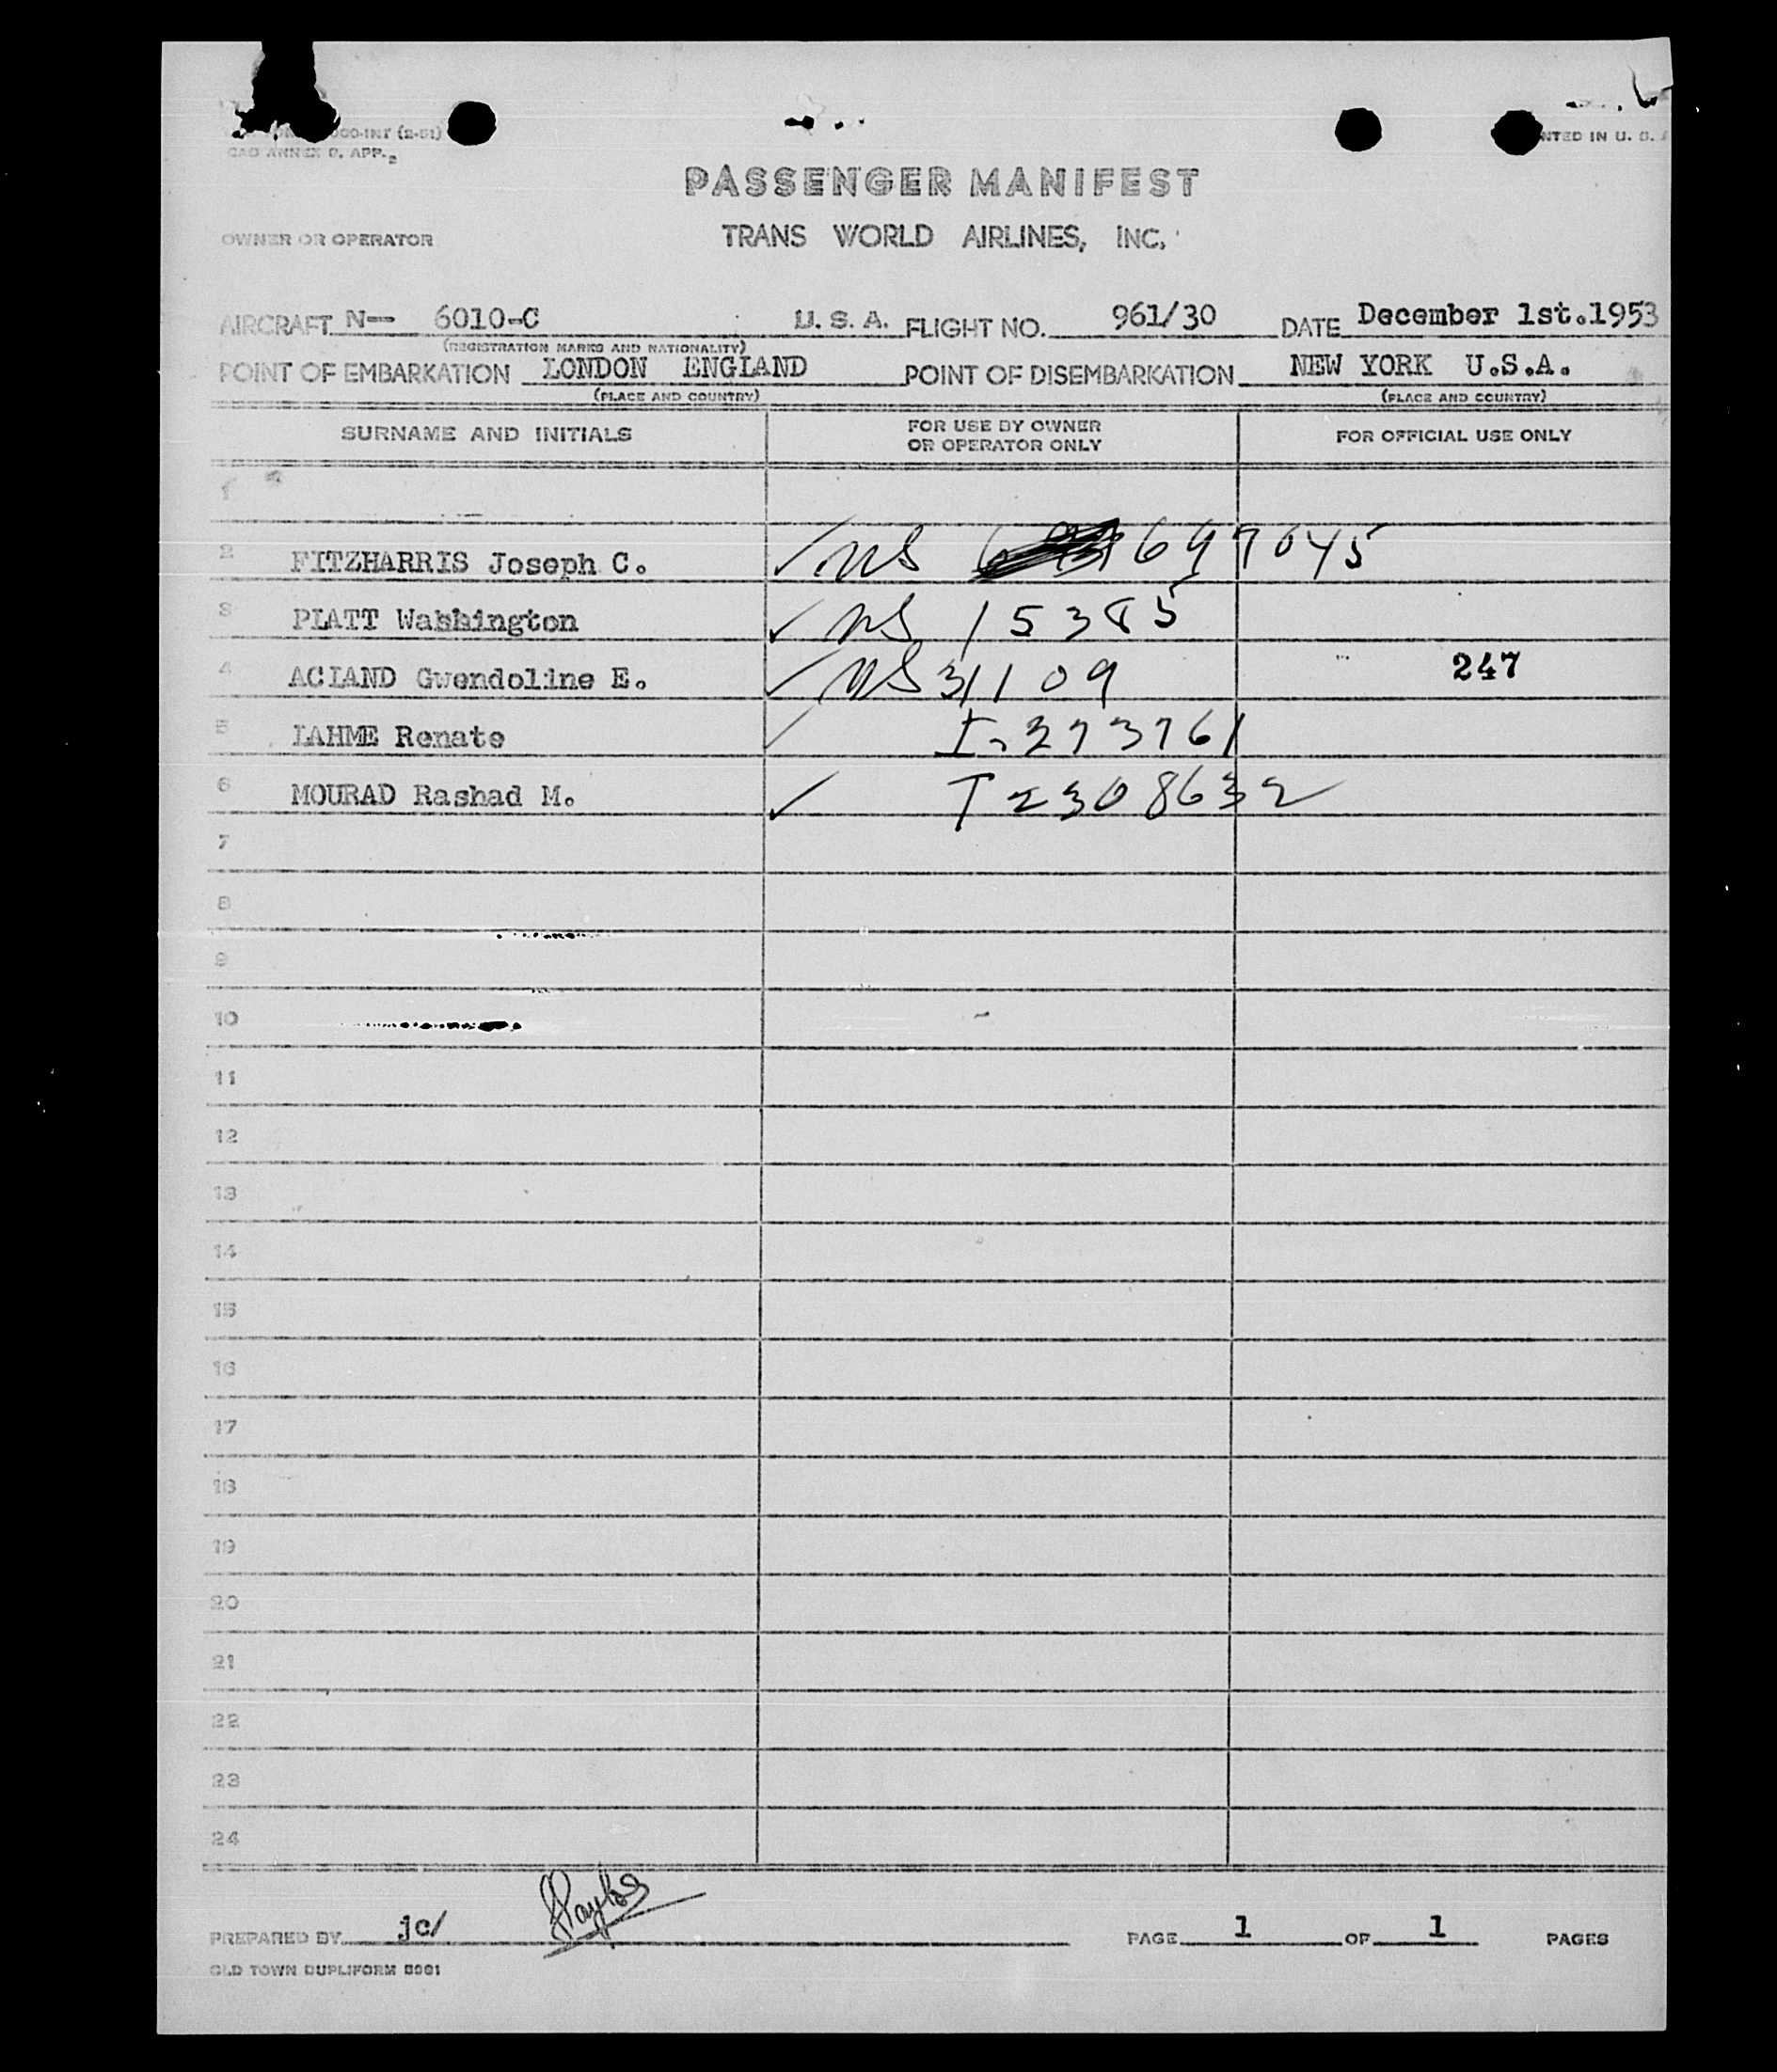 000-INT (2-51)
CAO ANNEX 9, APP. 2
NTED IN U. S. A
PASSENGER MANIFEST
OWNER OR OPERATOR TRANS WORLD AIRLINES, INC.
AIRCRAFT N— 6010-C U. S. A. FLIGHT NO. 961/30 DATE December 1st.1953
(REGISTRATION MARKS AND NATIONALITY)
POINT OF EMBARKATION LONDON ENGLAND POINT OF DISEMBARKATION NEW YORK U.S.A.
(PLACE AND COUNTRY) (PLACE AND COUNTRY)
SURNAME AND INITIALS FOR USE BY OWNER OR OPERATOR ONLY FOR OFFICIAL USE ONLY
1
2 FITZHARRIS Joseph C. ✓ NS 697045
3 PLATT Washington ✓ NS 15385
4 ACLAND Gwendoline E. ✓ NS 31109 247
5 LAHME Renate ✓ I-273761
6 MOURAD Rashad M. ✓ I 2308632
7
8
9
10
11
12
13
14
15
16
17
18
19
20
21
22
23
24
PREPARED BY jc/ PAGE 1 OF 1 PAGES
OLD TOWN DUPLIFORM